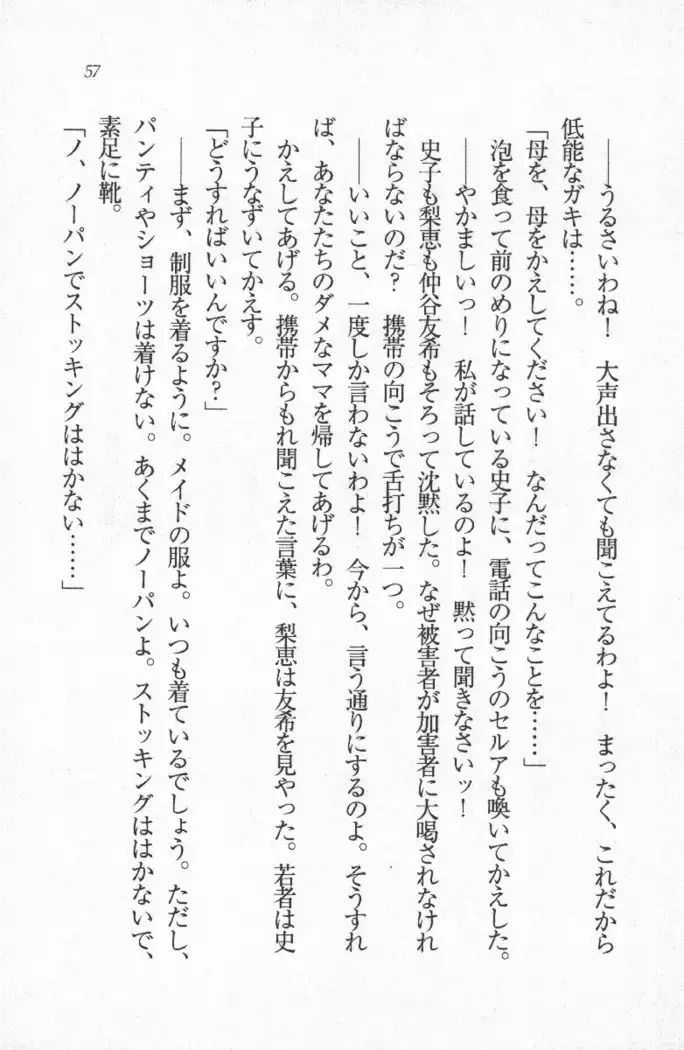 57
――うるさいわね！　大声出さなくても聞こえてるわよ！　まったく、これだから
低能なガキは……。
「母を、母をかえしてください！　なんだってこんなことを……」
泡を食って前のめりになっている史子に、電話の向こうのセルアも喚いてかえした。
――やかましいっ！　私が話しているのよ！　黙って聞きなさいッ！
史子も梨恵も仲谷友希もそろって沈黙した。なぜ被害者が加害者に大喝されなけれ
ばならないのだ？　携帯の向こうで舌打ちが一つ。
――いいこと、一度しか言わないわよ！　今から、言う通りにするのよ。そうすれ
ば、あなたたちのダメなママを帰してあげるわ。
かえしてあげる。携帯からもれ聞こえた言葉に、梨恵は友希を見やった。若者は史
子にうなずいてかえす。
「どうすればいいんですか？」
――まず、制服を着るように。メイドの服よ。いつも着ているでしょう。ただし、
パンティやショーツは着けない。あくまでノーパンよ。ストッキングははかないで、
素足に靴。
「ノ、ノーパンでストッキングははかない……」